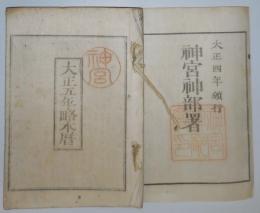 大正四年頒行
神宮神部署
神宮
大正五年略本暦